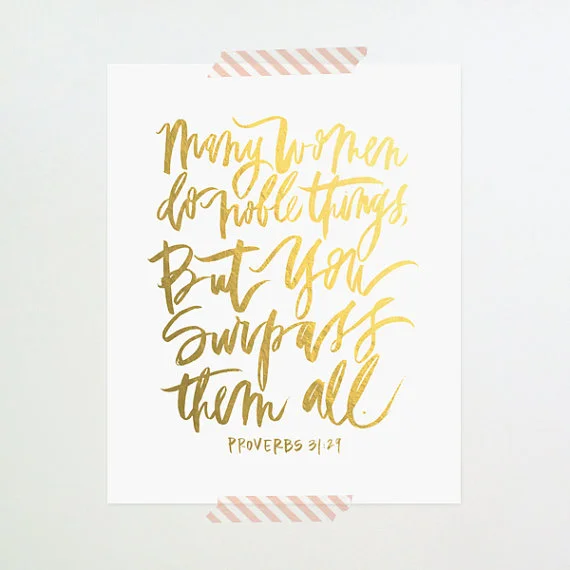 Many women
do noble things,
But You
Surpass
them all.
PROVERBS 31:29